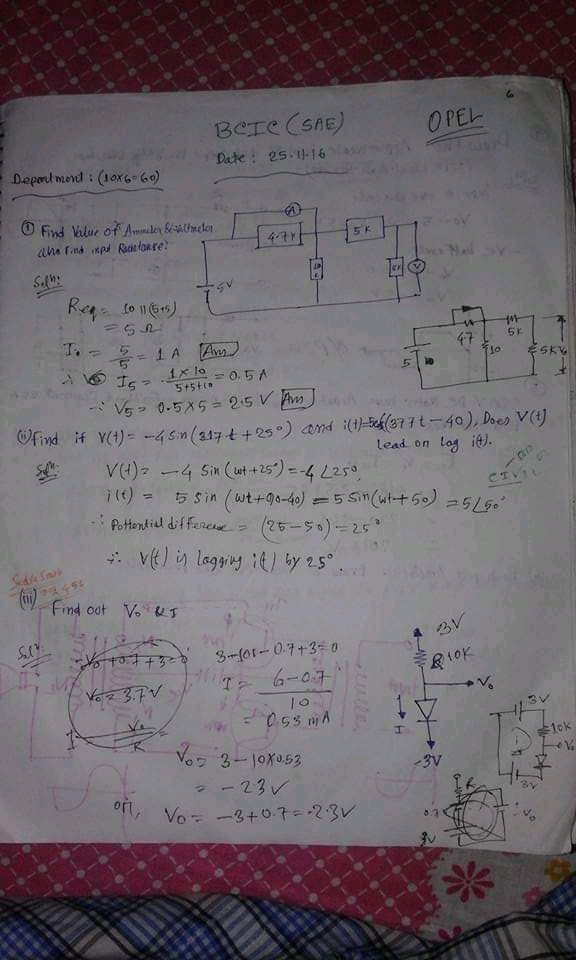 6
BCIC (SAE)
OPEL
Date: 25.11.16
Department: (10x6=60)
① Find Value of Ammeter & voltmeter
also Find input Resistance?
A
4.7K
5K
V
5V
Soln:
Req = 10 || (5+5)
= 5 Ω
I₀ = 5/5 = 1 A Ans
∴ I5 = (1×10)/(5+5+10) = 0.5 A
∴ V5 = 0.5×5 = 2.5 V Ans
5
47
5K
10
5K
V₀
(ii) Find if V(t) = -4 Sin (317t + 25°) and i(t)= (377t - 40), Does V(t)
lead or lag i(t).
Soln:
V(t) = -4 Sin (wt+25°) = -4∠25°,
i(t) = 5 sin (wt+90-40) = 5 Sin(wt+50) = 5∠50°
∴ Pottential difference = (25-50) = 25°
∴ V(t) is lagging i(t) by 25°.
(iii)
Find out V₀ & I
Soln:
-V₀+0.7+3=0
V₀ = 3.7 V
3-10I-0.7+3=0
I = (6-0.7)/10
= 0.53 mA
V₀ = 3-10×0.53
= -2.3V
or, V₀ = -3+0.7 = -2.3V
3V
R 10K
V₀
I
-3V
3V
10K
V₀
3V
R
0.7
3V
V₀